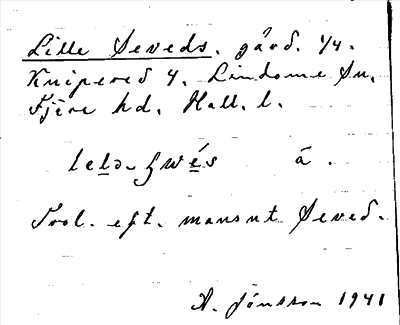 Lille Seveds. gård. 1/4.
Knipered 4. Lindome Sn.
Fjäre hd. Hall. l.
å.
Trol. eft. mansnt Seved.
A. Jönsson 1941